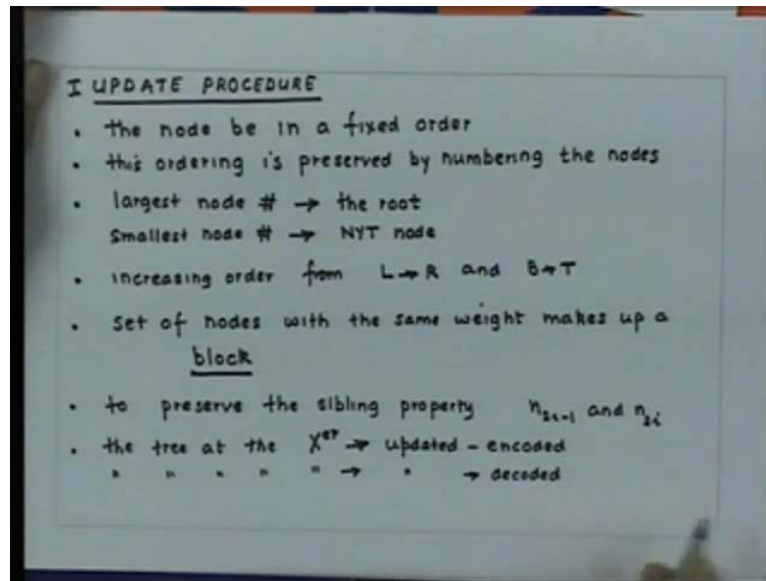 I UPDATE PROCEDURE
• the node be in a fixed order
• this ordering is preserved by numbering the nodes
• largest node # → the root
Smallest node # → NYT node
• increasing order from L→R and B→T
• Set of nodes with the same weight makes up a
block
• to preserve the sibling property n₂ᵢ₋₁ and n₂ᵢ
• the tree at the Xᵉʳ → updated - encoded
" " " " " → " → decoded